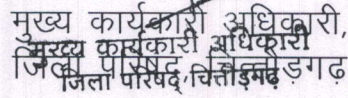 मुख्य कार्यकारी अधिकारी,
मुख्य कार्यकारी अधिकारी
जिला परिषद, चित्तौड़गढ़
जिला परिषद्, चित्तौड़गढ़